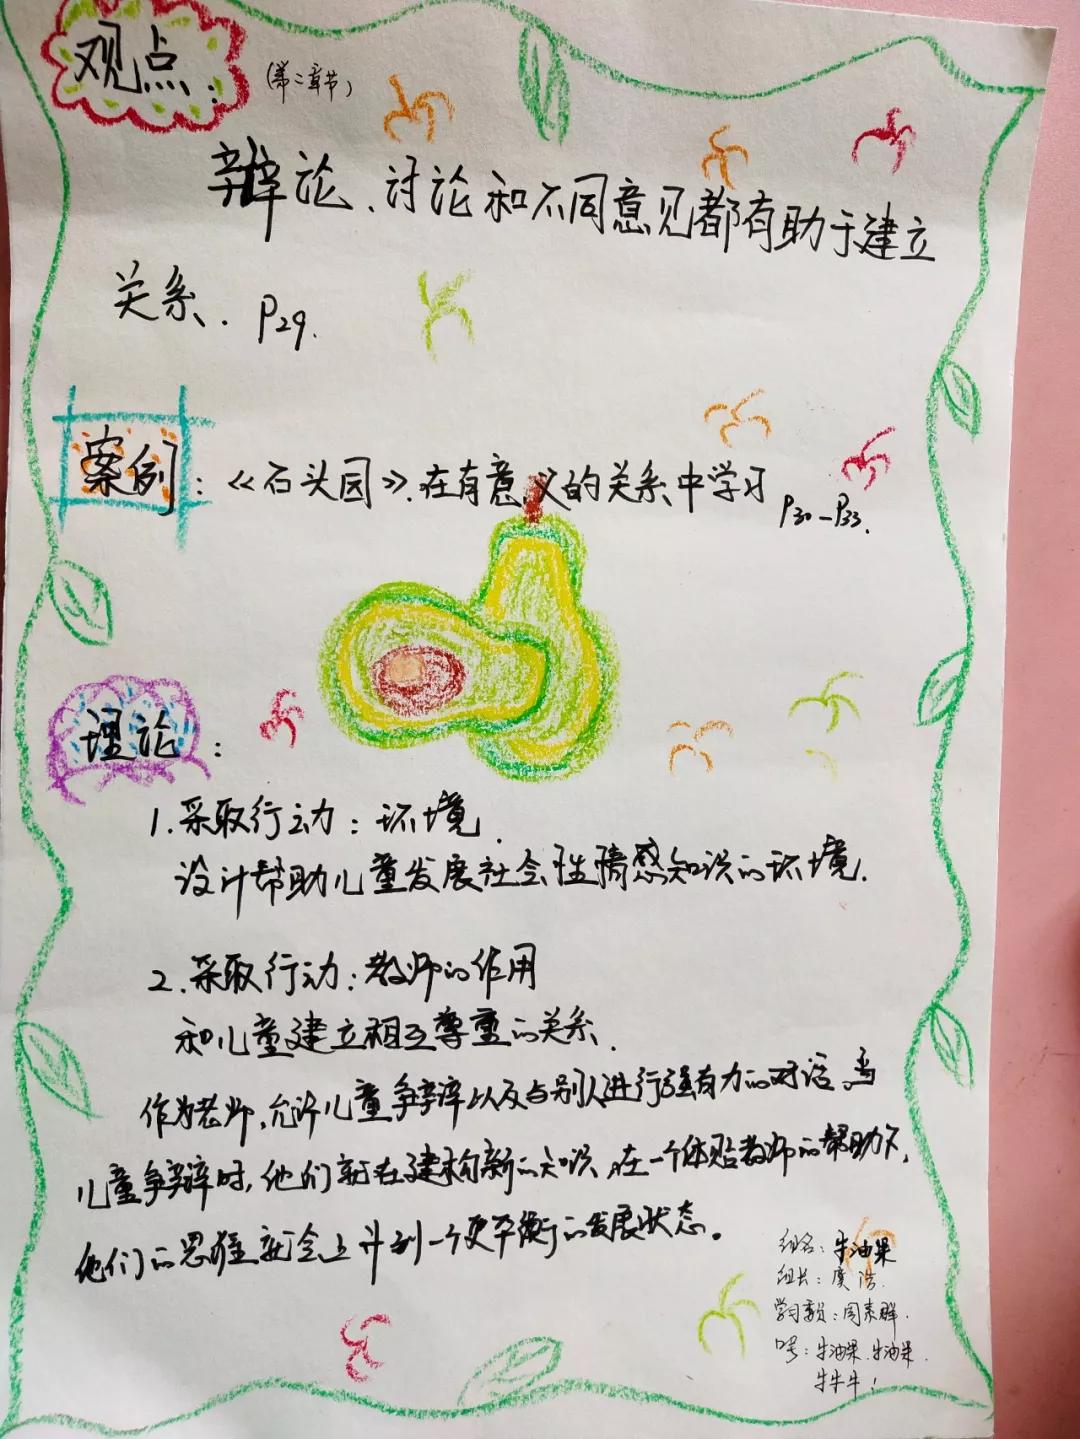 观点：（第二章节）
辩论、讨论和不同意见都有助于建立
关系．P29.
案例：《石头园》.在有意义的关系中学习 P30-P33.
理论：
1.采取行动：环境．
设计帮助儿童发展社会性情感知识的环境．
2.采取行动：教师的作用
和儿童建立相互尊重的关系．
作为老师，允许儿童争辩以及与别人进行强有力的对话，当
儿童争辩时，他们就在建构新的知识，在一个体贴教师的帮助下，
他们的思维就会上升到一个更平衡的发展状态。
组名：牛油果
组长：虞浩
学习委员：周素
口号：牛油果．牛油果．
牛牛牛！